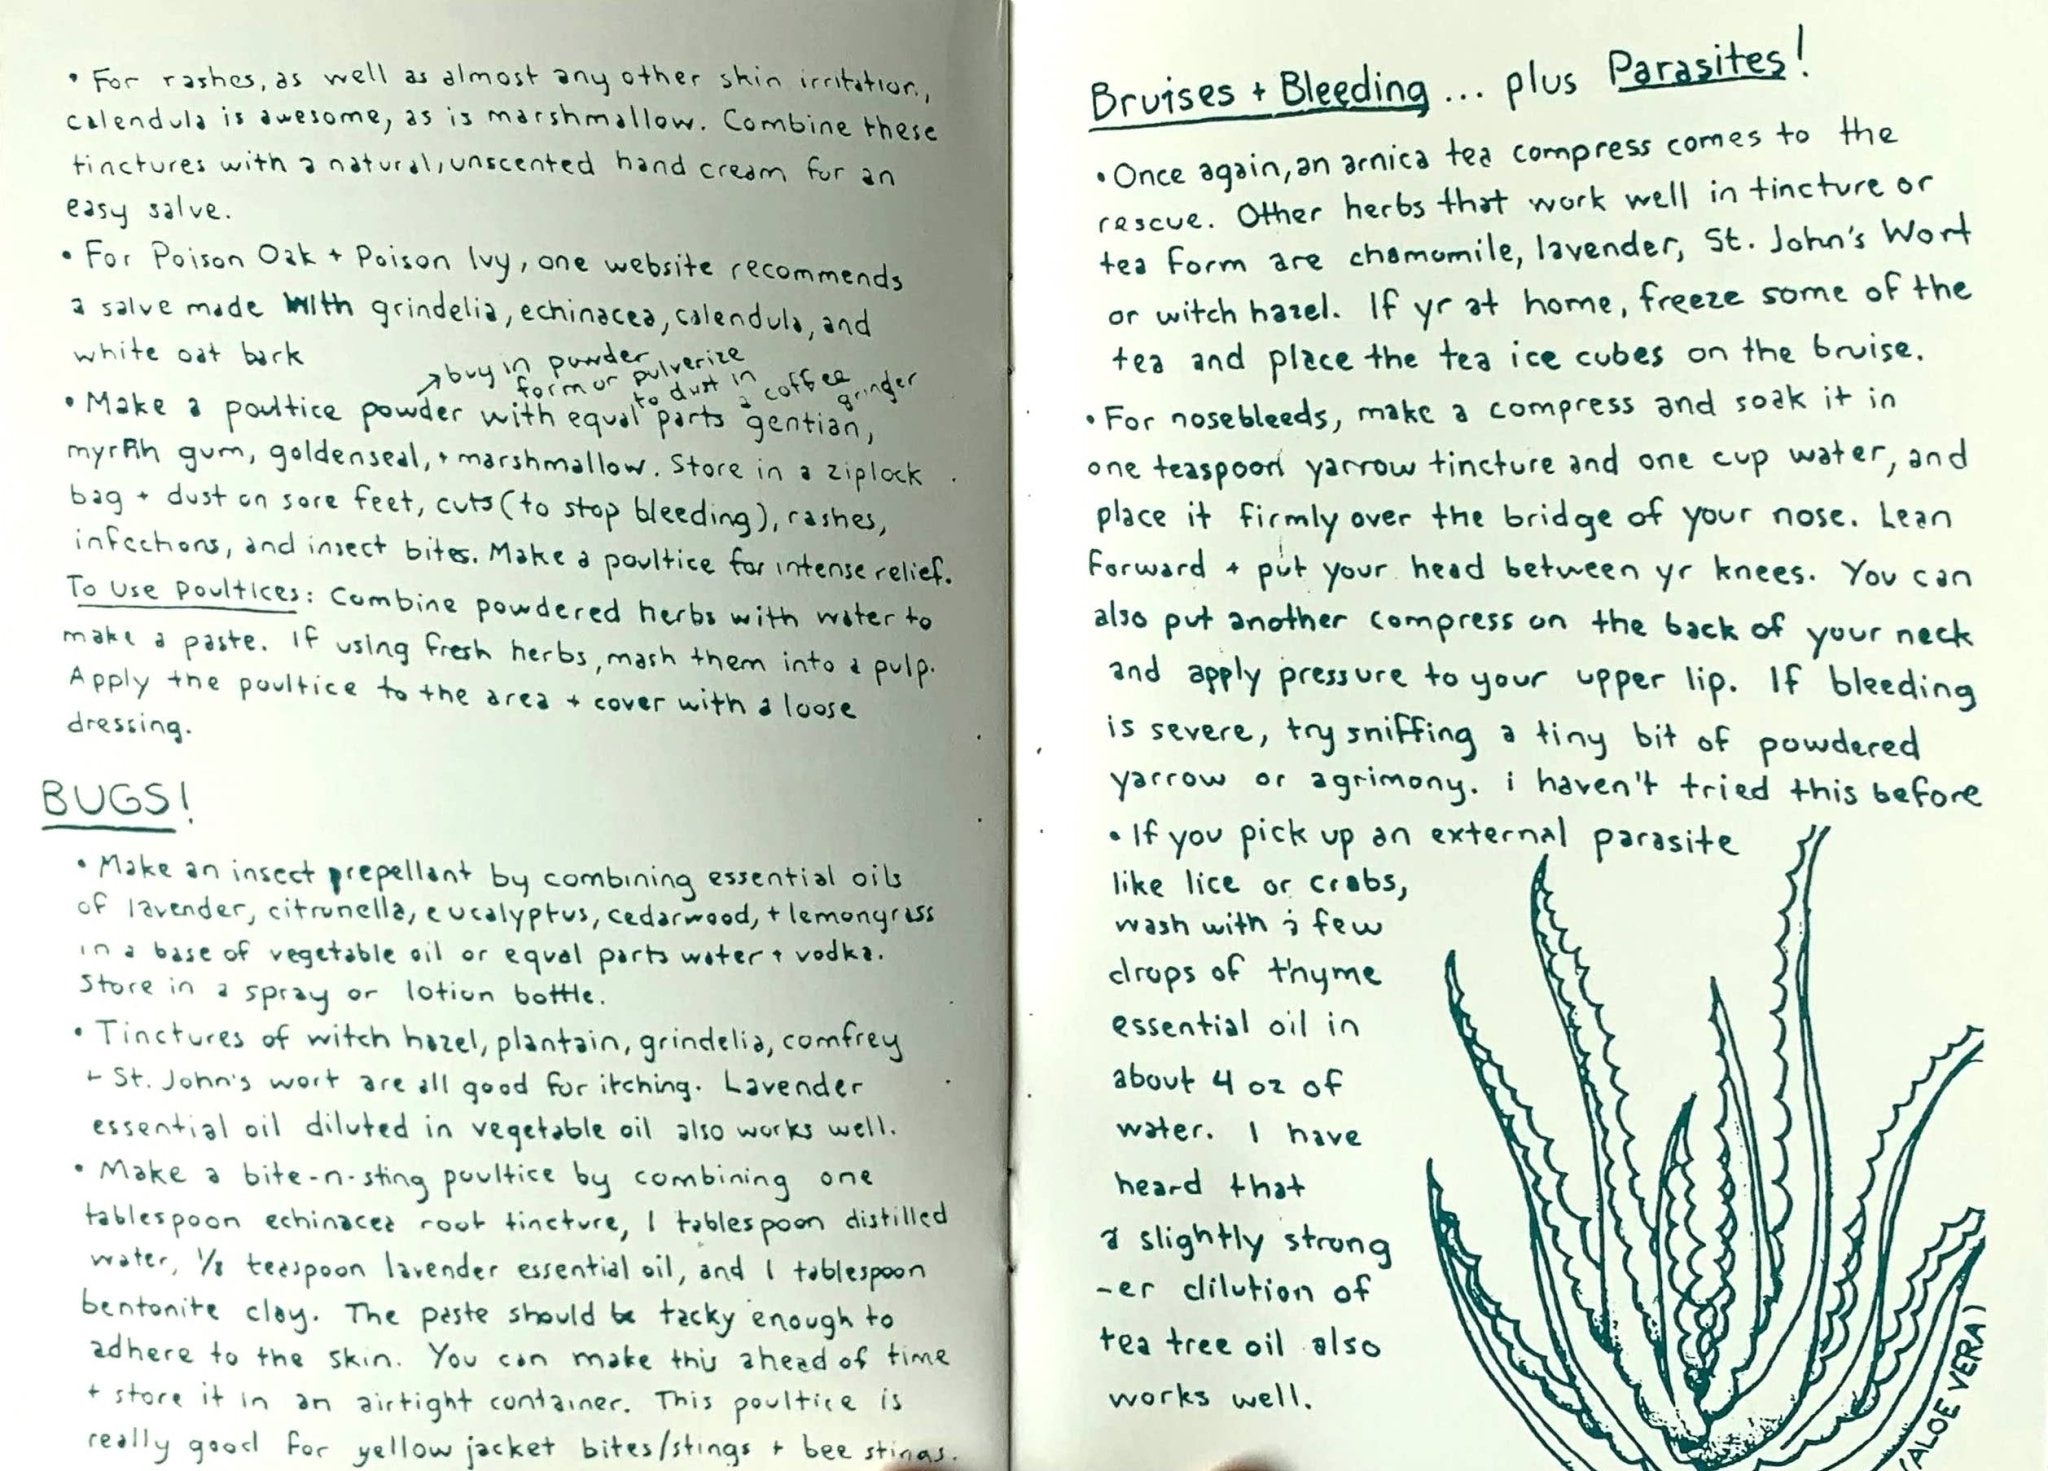 • For rashes, as well as almost any other skin irritation,
calendula is awesome, as is marshmallow. Combine these
tinctures with a natural, unscented hand cream for an
easy salve.
• For Poison Oak + Poison Ivy, one website recommends
a salve made with grindelia, echinacea, calendula, and
white oat bark
↗ buy in powder
form or pulverize
to dust in
a coffee
grinder
• Make a poultice powder with equal parts gentian,
myrRh gum, goldenseal, + marshmallow. Store in a ziplock
bag + dust on sore feet, cuts (to stop bleeding), rashes,
infections, and insect bites. Make a poultice for intense relief.
To Use Poultices: Combine powdered herbs with water to
make a paste. If using fresh herbs, mash them into a pulp.
Apply the poultice to the area + cover with a loose
dressing.
BUGS!
• Make an insect repellant by combining essential oils
of lavender, citronella, eucalyptus, cedarwood, + lemongrass
in a base of vegetable oil or equal parts water + vodka.
Store in a spray or lotion bottle.
• Tinctures of witch hazel, plantain, grindelia, comfrey
+ St. John's wort are all good for itching. Lavender
essential oil diluted in vegetable oil also works well.
• Make a bite-n-sting poultice by combining one
tablespoon echinacea root tincture, 1 tablespoon distilled
water, 1/8 teaspoon lavender essential oil, and 1 tablespoon
bentonite clay. The paste should be tacky enough to
adhere to the skin. You can make this ahead of time
+ store it in an airtight container. This poultice is
really good for yellow jacket bites/stings + bee stings.
Bruises + Bleeding ... plus Parasites!
• Once again, an arnica tea compress comes to the
rescue. Other herbs that work well in tincture or
tea form are chamomile, lavender, St. John's Wort
or witch hazel. If yr at home, freeze some of the
tea and place the tea ice cubes on the bruise.
• For nosebleeds, make a compress and soak it in
one teaspoon yarrow tincture and one cup water, and
place it firmly over the bridge of your nose. Lean
forward + put your head between yr knees. You can
also put another compress on the back of your neck
and apply pressure to your upper lip. If bleeding
is severe, try sniffing a tiny bit of powdered
yarrow or agrimony. i haven't tried this before
• If you pick up an external parasite
like lice or crabs,
wash with a few
drops of thyme
essential oil in
about 4 oz of
water. I have
heard that
a slightly strong
-er dilution of
tea tree oil also
works well.
(ALOE VERA)